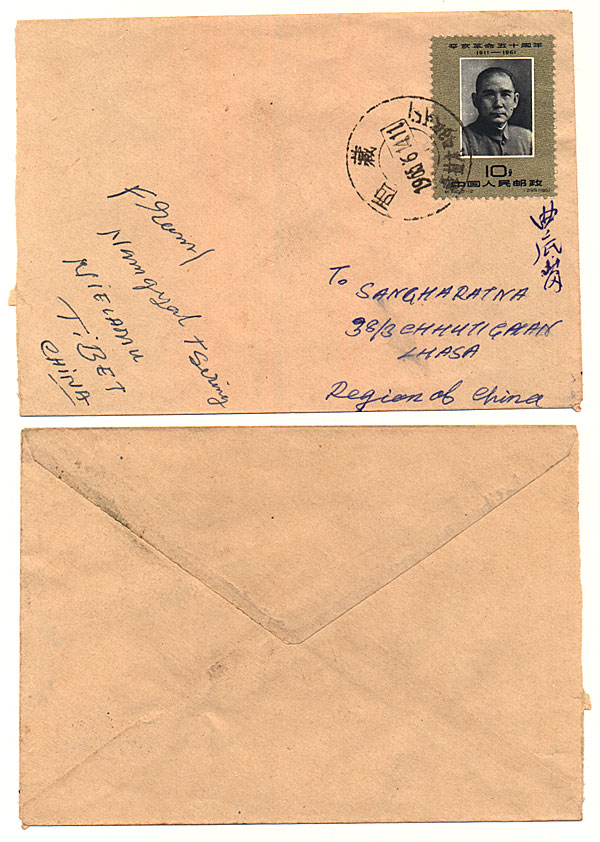 辛亥革命五十周年
1911—1961
10分
中国人民邮政
西藏
From
Namgyal Tsering
NIELAMU
TiBET
CHiNA
To SANGHARATNA
38/3 CHHUTIGAAN
LHASA
Region of China